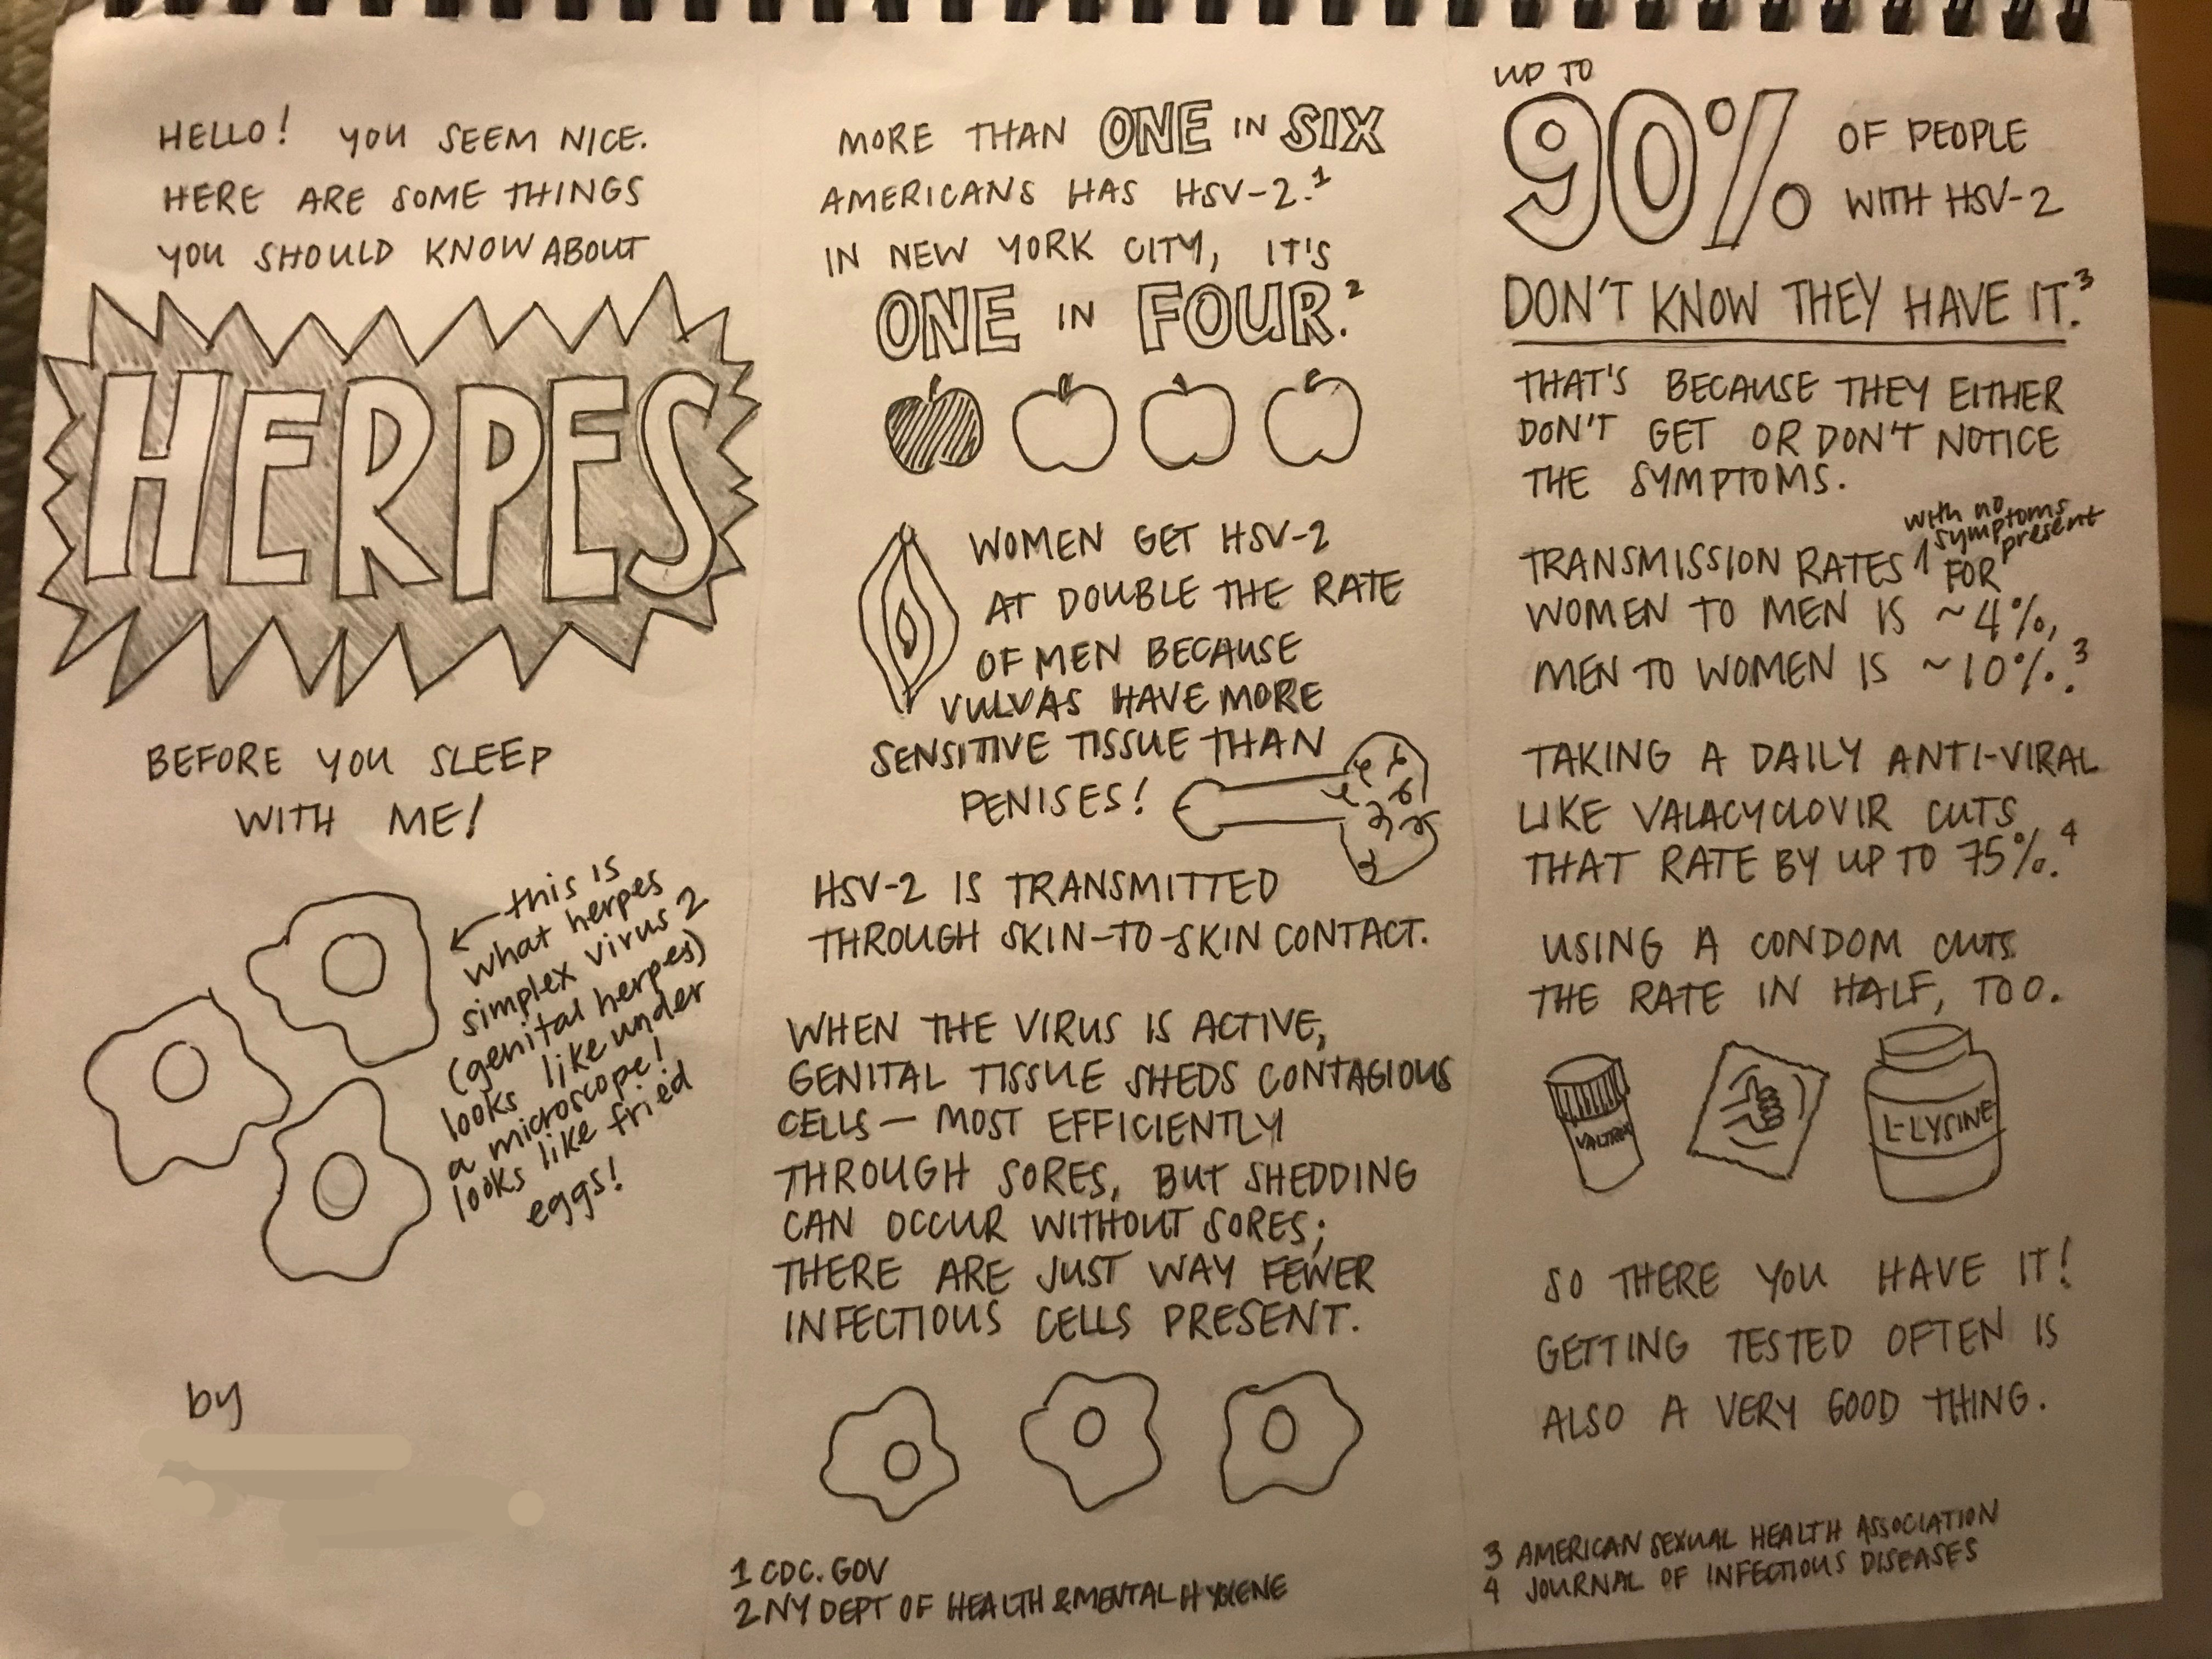 HELLO! YOU SEEM NICE.
HERE ARE SOME THINGS
YOU SHOULD KNOW ABOUT
HERPES
BEFORE YOU SLEEP
WITH ME!
this is
what herpes
simplex virus 2
(genital herpes)
looks like under
a microscope!
looks like fried
eggs!
by
MORE THAN ONE IN SIX
AMERICANS HAS HSV-2.¹
IN NEW YORK CITY, IT'S
ONE IN FOUR.²
WOMEN GET HSV-2
AT DOUBLE THE RATE
OF MEN BECAUSE
VULVAS HAVE MORE
SENSITIVE TISSUE THAN
PENISES!
HSV-2 IS TRANSMITTED
THROUGH SKIN-TO-SKIN CONTACT.
WHEN THE VIRUS IS ACTIVE,
GENITAL TISSUE SHEDS CONTAGIOUS
CELLS — MOST EFFICIENTLY
THROUGH SORES, BUT SHEDDING
CAN OCCUR WITHOUT SORES;
THERE ARE JUST WAY FEWER
INFECTIOUS CELLS PRESENT.
1 CDC.GOV
2 NY DEPT OF HEALTH & MENTAL HYGIENE
UP TO
90% OF PEOPLE
WITH HSV-2
DON'T KNOW THEY HAVE IT.³
THAT'S BECAUSE THEY EITHER
DON'T GET OR DON'T NOTICE
THE SYMPTOMS.
with no
symptoms
present
TRANSMISSION RATES FOR
WOMEN TO MEN IS ~4%,
MEN TO WOMEN IS ~10%.³
TAKING A DAILY ANTI-VIRAL
LIKE VALACYCLOVIR CUTS
THAT RATE BY UP TO 75%.⁴
USING A CONDOM CUTS
THE RATE IN HALF, TOO.
VALTREX
L-LYSINE
SO THERE YOU HAVE IT!
GETTING TESTED OFTEN IS
ALSO A VERY GOOD THING.
3 AMERICAN SEXUAL HEALTH ASSOCIATION
4 JOURNAL OF INFECTIOUS DISEASES